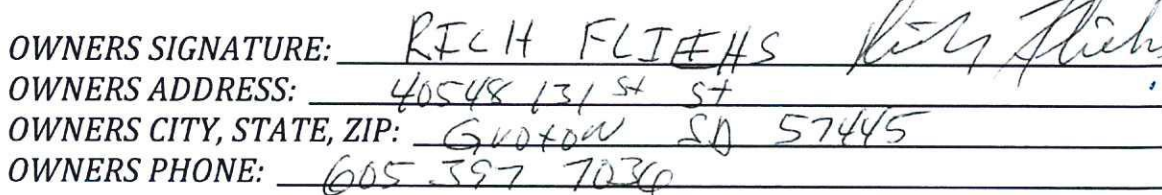 OWNERS SIGNATURE: RICH FLIEHS Rich Fliehs
OWNERS ADDRESS: 40548 131 st St
OWNERS CITY, STATE, ZIP: Groton SD 57445
OWNERS PHONE: 605 397 7036